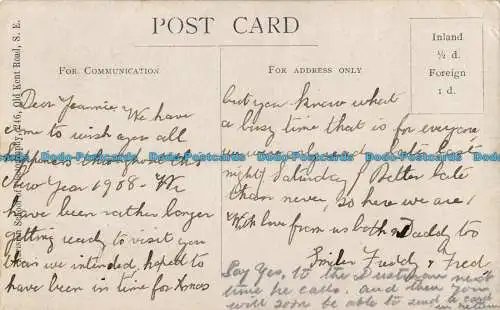 POST CARD
Inland
½ d.
Foreign
1 d.
FOR COMMUNICATION
FOR ADDRESS ONLY
216, Old Kent Road, S. E.
Dear Jeannie, We have
come to wish you all
happiness throughout this
New Year 1908 - We
have been rather longer
getting ready to visit you
than we intended, hoped to
have been in time for Xmas
but you know what
a busy time that is for everyone
late last
night, Saturday / Better late
than never, so here we are,
With love from us both & Daddy too
Fredd & Fred
Say Yes, to the Dustman next
time he calls. and then you
will soon be able to send a card
in return